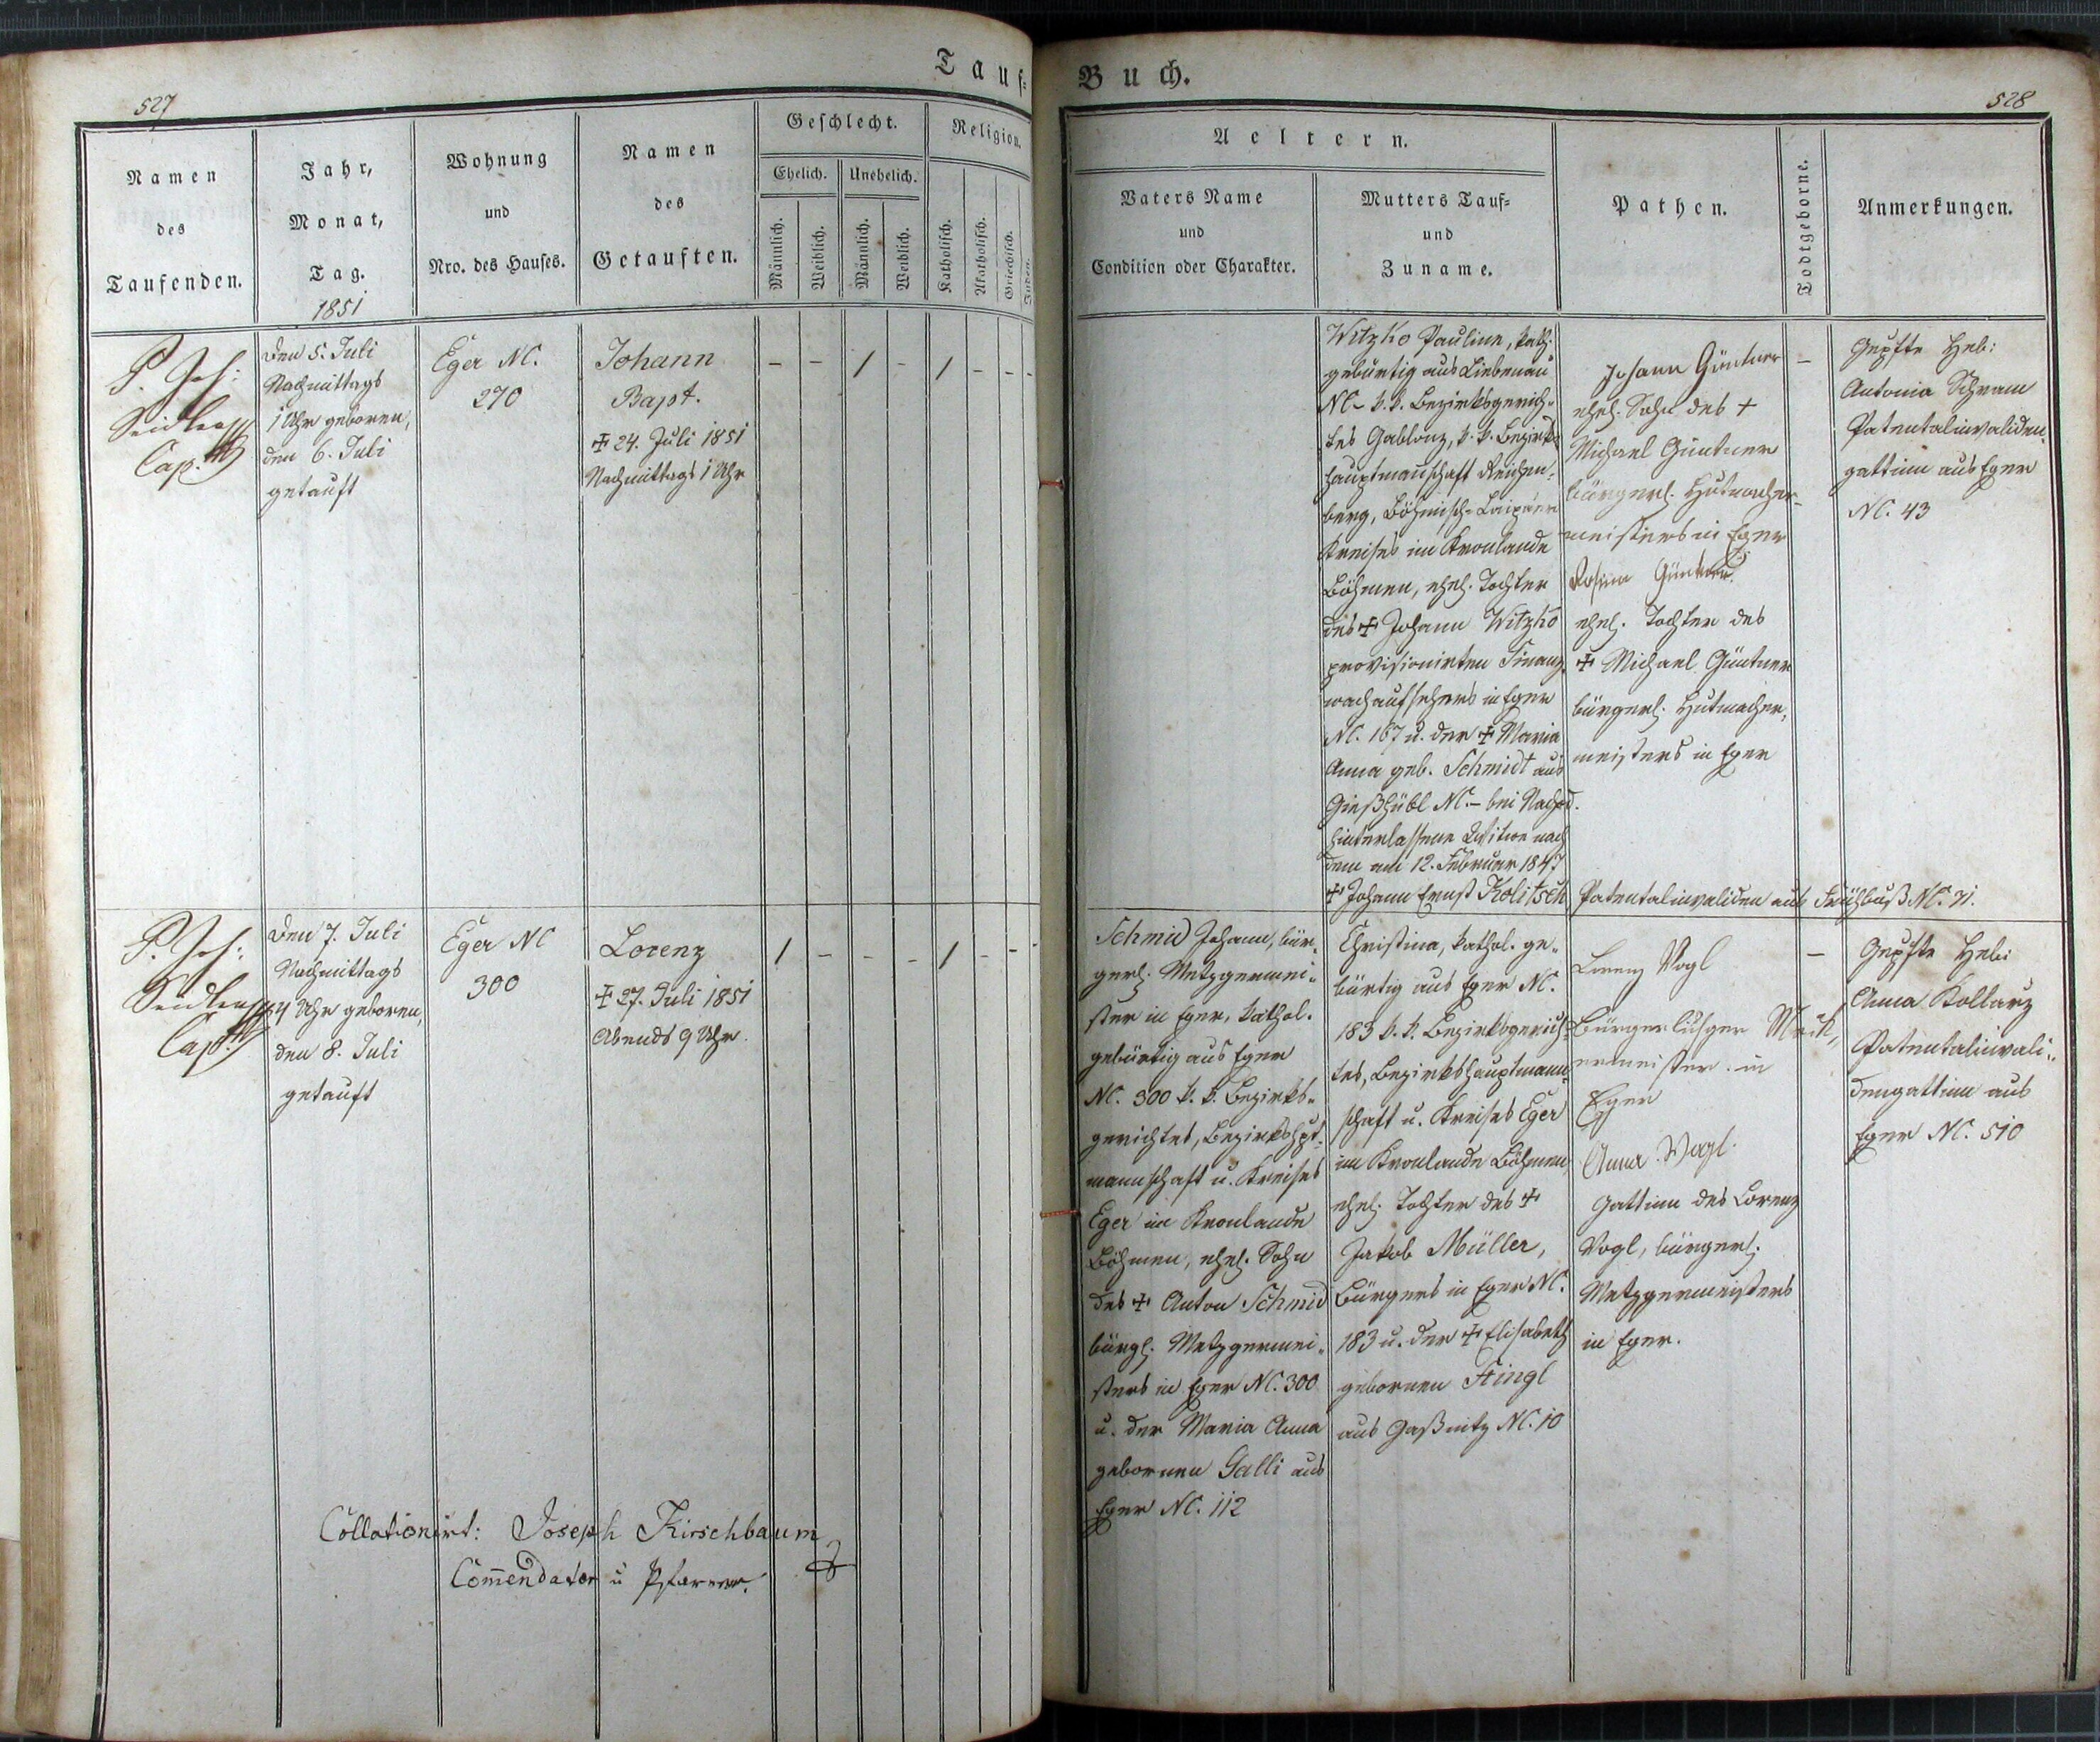 Tauf=
Buch.
527
528
Namen
des
Taufenden.
Jahr,
Monat,
Tag.
1851
Wohnung
und
Nro. des Hauses.
Namen
des
Getauften.
Geschlecht.
Ehelich.
Unehelich.
Männlich.
Weiblich.
Männlich.
Weiblich.
Religion.
Katholisch.
Akatholisch.
Griechisch.
Juden.
Aeltern.
Vaters Name
und
Condition oder Charakter.
Mutters Tauf=
und
Zuname.
Pathen.
Todtgeborne.
Anmerkungen.
P. Jos:
Seidler
Cap.
den 5. Juli
Nachmittags
1 Uhr geboren,
den 6. Juli
getauft
Eger NC.
270
Johann
Bapt.
✝ 24. Juli 1851
Nachmittags 1 Uhr
- - / - / - - -
Witzko Pauline, kath.
gebürtig aus Liebenau
NC- k. k. Bezirksgerich-
tes Gablonz, k. k. Bezirks-
hauptmannschaft Reichen-
berg, Böhmisch-Leipaer
Kreises im Kronlande
Böhmen, ehel. Tochter
des ✝ Johann Witzko
provisionirten Finanz-
wachaufsehers in Eger
NC. 167 u. der ✝ Maria
Anna geb. Schmidt aus
Gießhübl NC.- bei Nachod.
hinterlassene Wittwe nach
dem am 12. Februar 1847
✝ Johann Ernst Kolitsch Patentalinvaliden aus Frühbuß NC. 71.
Johann Güntner
ehel. Sohn des +
Michael Güntner
bürgerl. Hutmacher-
meisters in Eger
Rosina Güntner
ehel. Tochter des
✝ Michael Güntner
bürgerl. Hutmacher-
meisters in Eger
-
Geprfte Heb:
Antonia Schram
Patentalinvaliden-
gattinn aus Eger
NC. 43
P. Jos:
Seidler
Cap.
den 7. Juli
Nachmittags
4 Uhr geboren,
den 8. Juli
getauft
Eger NC
300
Lorenz
✝ 27. Juli 1851
Abends 9 Uhr.
/ - - - / - - -
Schmid Johann, bür-
gerl. Metzgermei-
ster in Eger, kathol.
gebürtig aus Eger
NC. 300 k. k. Bezirks-
gerichtes, Bezirkshpt-
mannschaft u. Kreises
Eger im Kronlande
Böhmen, ehel. Sohn
des ✝ Anton Schmid
bürgl. Metzgermei-
sters in Eger NC. 300
u. der Maria Anna
gebornen Galli aus
Eger NC. 112
Christina, kathol. ge-
bürtig aus Eger NC.
183 k. k. Bezirksgerich-
tes, Bezirkshauptmann-
schaft u. Kreises Eger
im Kronlande Böhmen,
ehel. Tochter des ✝
Jakob Müller,
Bürgers in Eger NC.
183 u. der ✝ Elisabeth
gebornen Stingl
aus Gaßnitz NC. 10
Lorenz Vogl
Bürgerlicher
ermeister in
Eger
Anna Vogl
Gattinn des Lorenz
Vogl, bürgerl.
Metzgermeisters
in Eger.
-
Geprfte Heb:
Anna Kollarz
Patentalinvali-
dengattinn aus
Eger NC. 510
Collationirt: Joseph Kirschbaum
Com̄endator u Pfarrer.